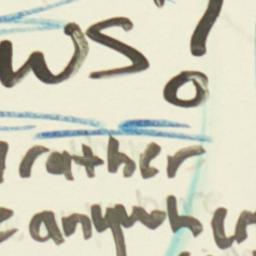 ws!
rather
anywh